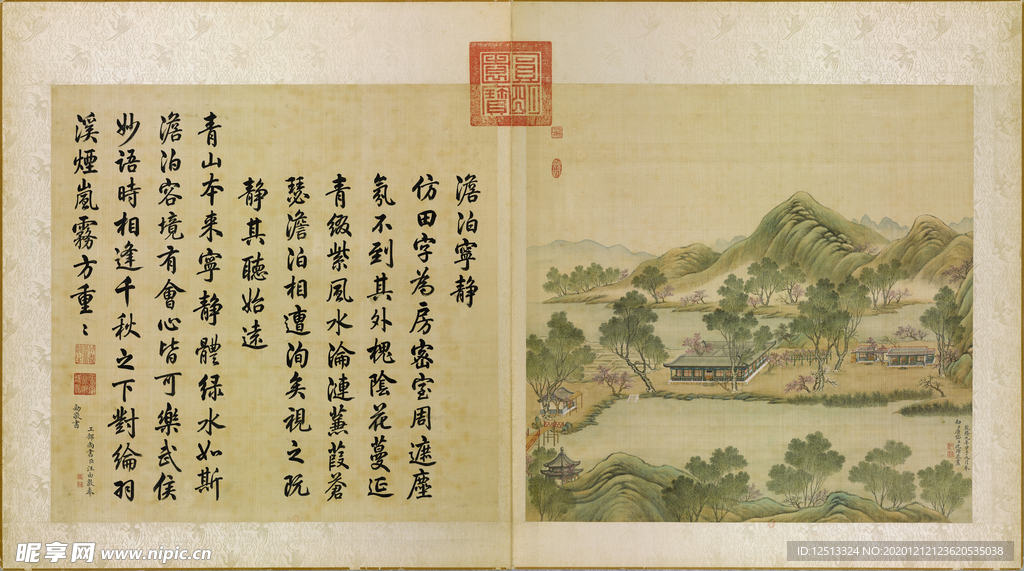 圓明園寶
澹泊寧靜
仿田字為房密室周遮塵
氛不到其外槐陰花蔓延
青綴紫風水淪漣蒹葭蒼
瑟澹泊相遭洵矣視之既
靜其聽始遠
青山本來寧靜體綠水如斯
澹泊容境有會心皆可樂武侯
妙語時相逢千秋之下對綸羽
溪煙嵐霧方重〻
工部尚書臣汪由敦奉
勅敬書
昵享网 www.nipic.cn
ID:12513324 NO:20201212123620535038